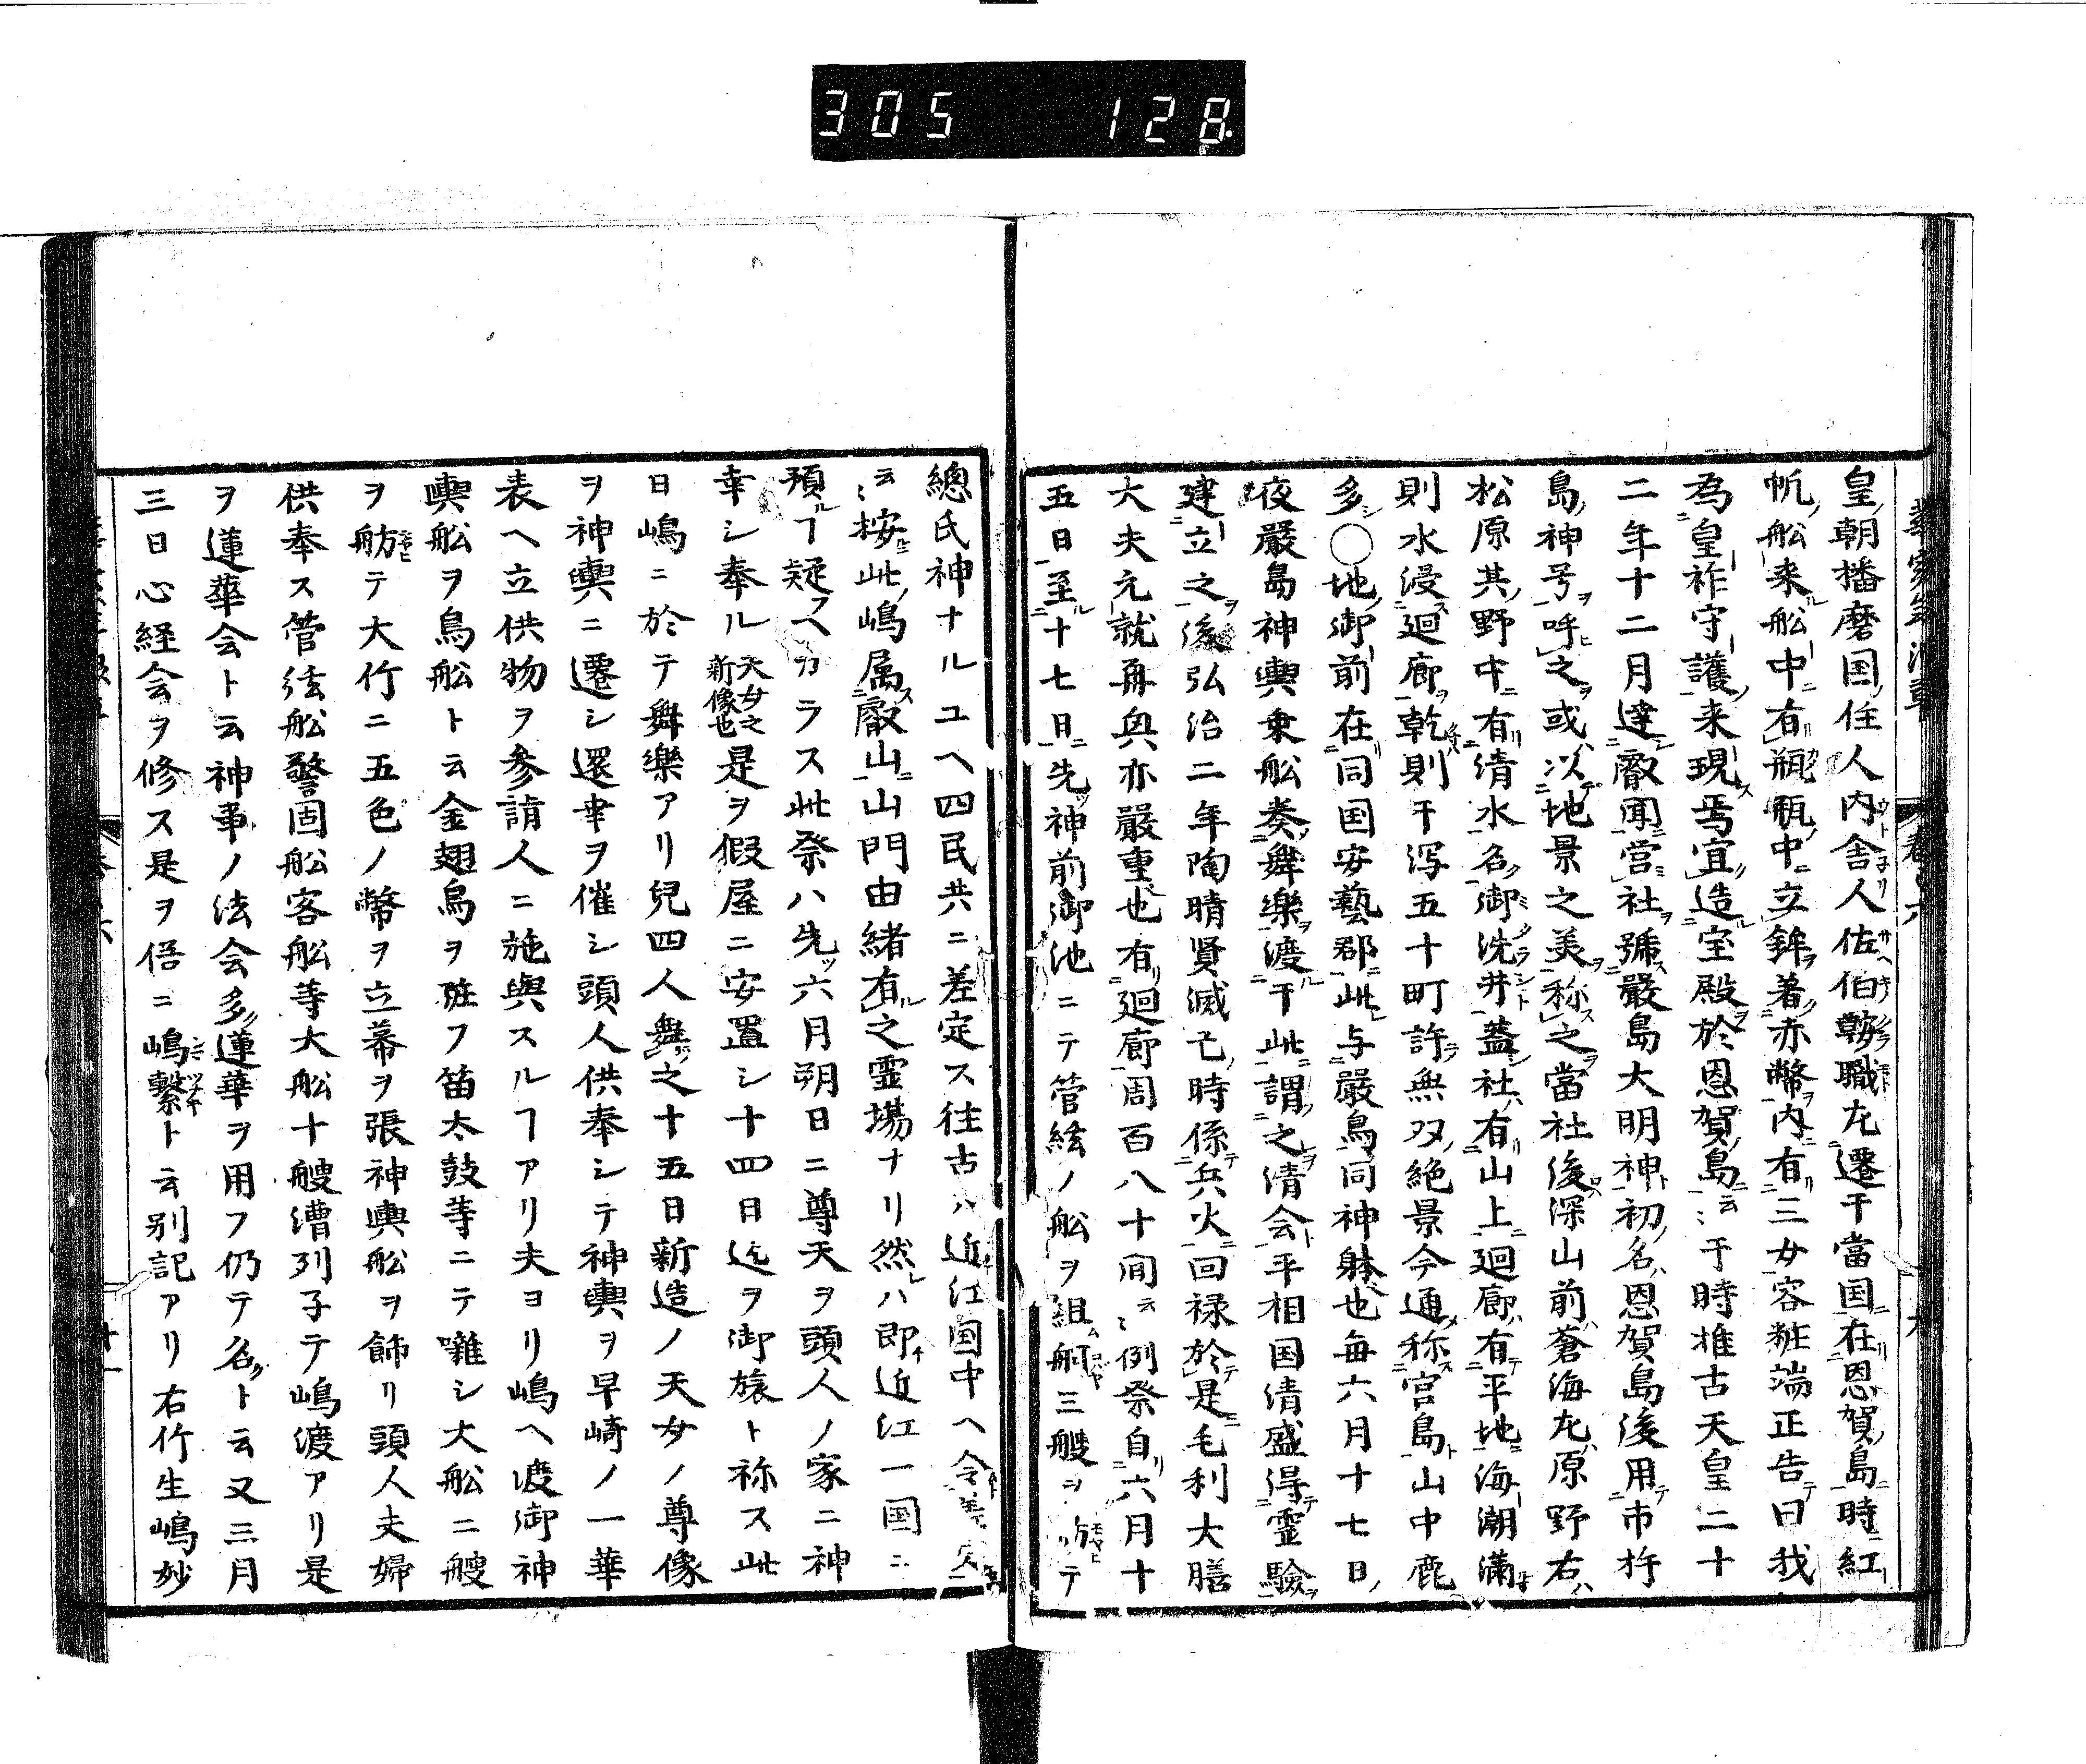 305 128
皇朝播磨国住人内舎人佐伯鞍職左遷干當国在恩賀島時紅
帆船来船中有瓶瓶中立鉾著赤幣内有三女容粧端正告曰我
為皇祚守護来現焉宜造宝殿於恩賀島云〻于時推古天皇二十
二年十二月達叡聞営社號嚴島大明神初名恩賀島後用市杵
島神号呼之或以地景之美称之當社後深山前蒼海左原野右
松原其野中有清水名御洗井蓋社有山上廻廊有平地海潮満
則水浸廻廊乾則干泻五十町許無双絶景今通称宮島山中鹿
多○地御前在同国安藝郡此与嚴島同神躰也毎六月十七日
夜嚴島神輿乗舩奏舞樂渡干此謂之清会平相国清盛得霊驗
建立之後弘治二年陶晴賢滅亡時係兵火回禄於是毛利大膳
大夫元就再興亦嚴重也有廻廊周百八十間云〻例祭自六月十
五日至十七日先神前御池ニテ管絃ノ舩ヲ組舸三艘ヲ舫テ
總氏神ナルユヘ四民共ニ差定ス往古ハ近江国中ヘ令差定
云〻按此嶋属叡山山門由緒有之霊場ナリ然ハ即近江一国ニ
預ルヿ疑フヘカラス此祭ハ先ツ六月朔日ニ尊天ヲ頭人ノ家ニ神
幸シ奉ル天女之新像也是ヲ假屋ニ安置シ十四日迄ヲ御旅ト称ス此
日嶋ニ於テ舞樂アリ兒四人舞之十五日新造ノ天女ノ尊像
ヲ神輿ニ遷シ還幸ヲ催シ頭人供奉シテ神輿ヲ早崎ノ一華
表ヘ立供物ヲ参詣人ニ施與スルヿアリ夫ヨリ嶋ヘ渡御神
輿舩ヲ鳥舩ト云金翅鳥ヲ粧フ笛太鼓等ニテ囃シ大舩二艘
ヲ舫テ大竹ニ五色ノ幣ヲ立幕ヲ張神輿舩ヲ飾リ頭人夫婦
供奉ス管絃舩警固舩客舩等大舩十艘漕列子テ嶋渡アリ是
ヲ蓮華会ト云神事ノ法会多蓮華ヲ用フ仍テ名クト云又三月
三日心経会ヲ修ス是ヲ俉ニ嶋繋ト云别記アリ右竹生嶋妙